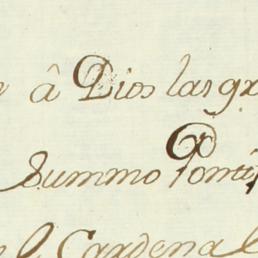 â Dios las gr
Summo Ponti
el Cardenal